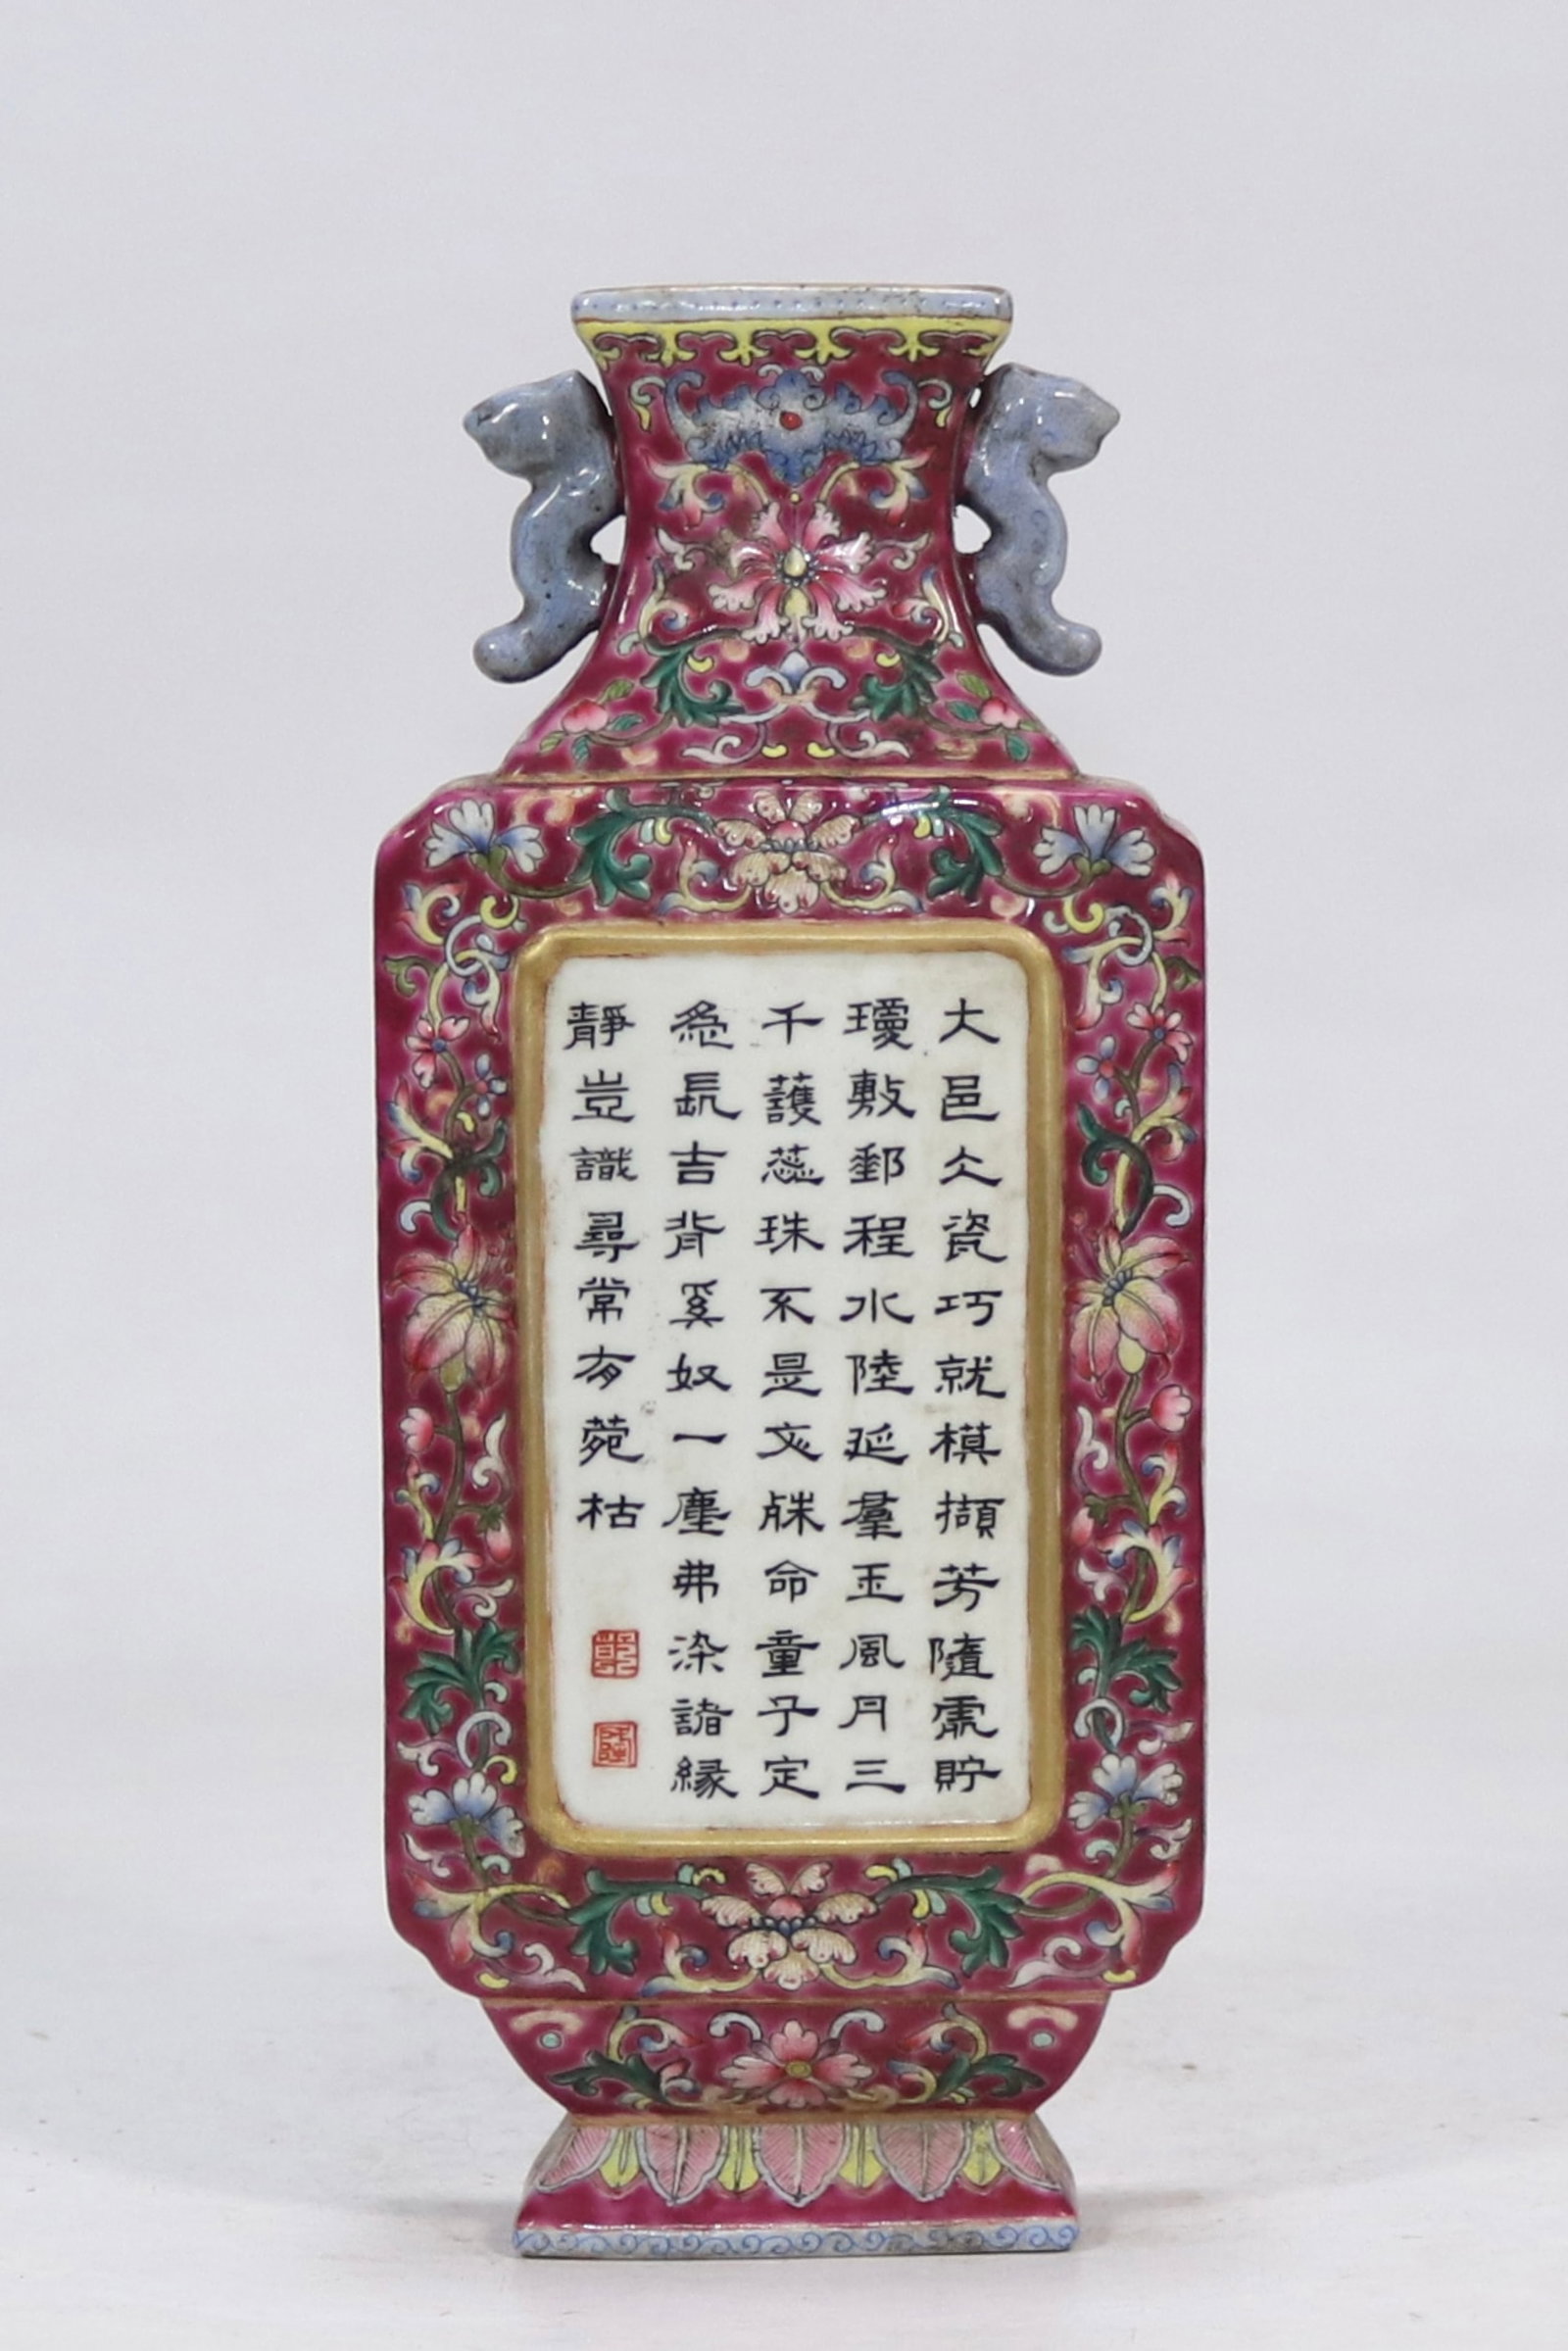 大邑仌瓷巧就模擷芳隨處貯
瓊敷郵程水陸延羣玉風月三
千護蕊珠不是文殊命童子定
急長吉背奚奴一塵弗染諸緣
靜豈識尋常有菀枯
乾
隆